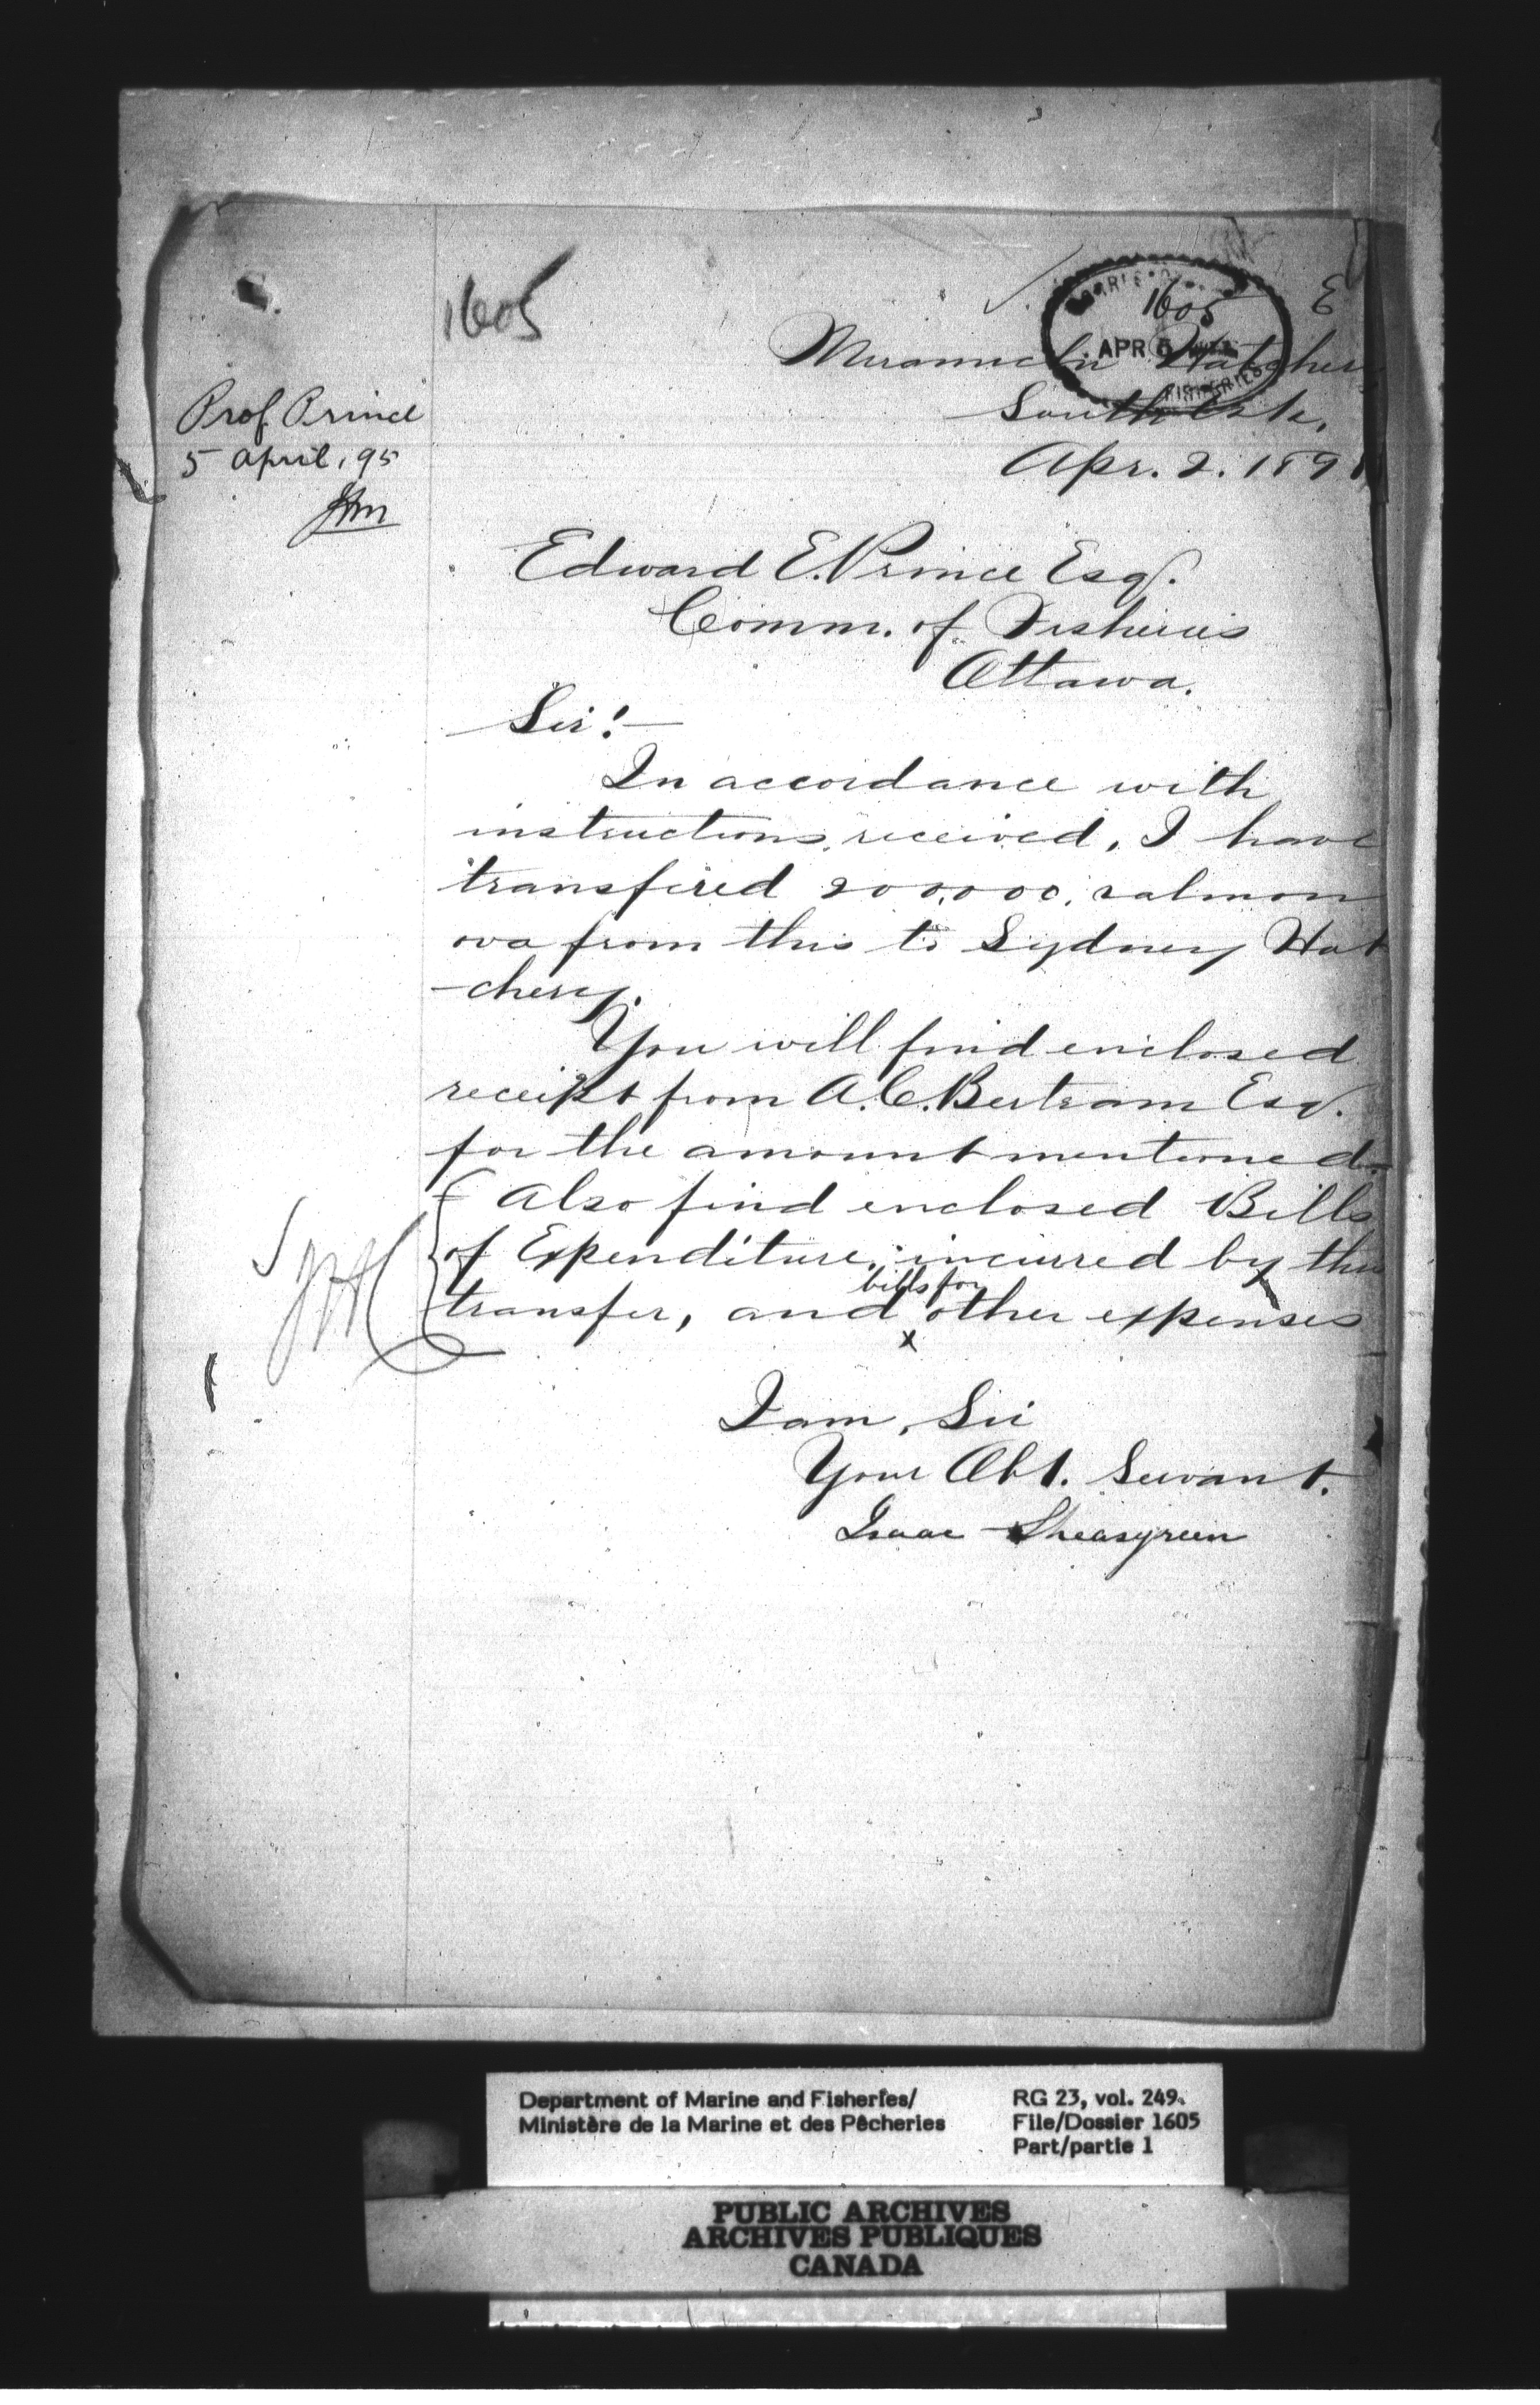 1605
1605
E
APR 5
FISHERIES
Miramichi Hatchery
South Esk,
Apr. 2. 189
Prof. Prince
5 April, 95
Edward E. Prince Esq.
Comm. of Fisheries
Ottawa.
Sir!—
In accordance with
instructions received, I have
transfered 200,000, salmon
ova from this to Sydney Hat
-chery.
You will find enclosed
receipt from A. C. Bertram Esq.
for the amount mentioned.
Also find enclosed Bills
of Expenditure, incurred by this
bills for
transfer, and other expenses
x
I am, Sir
Your Obt. Servant.
Isaac Sheasgreen
Department of Marine and Fisheries/
Ministère de la Marine et des Pêcheries
RG 23, vol. 249.
File/Dossier 1605
Part/partie 1
PUBLIC ARCHIVES
ARCHIVES PUBLIQUES
CANADA